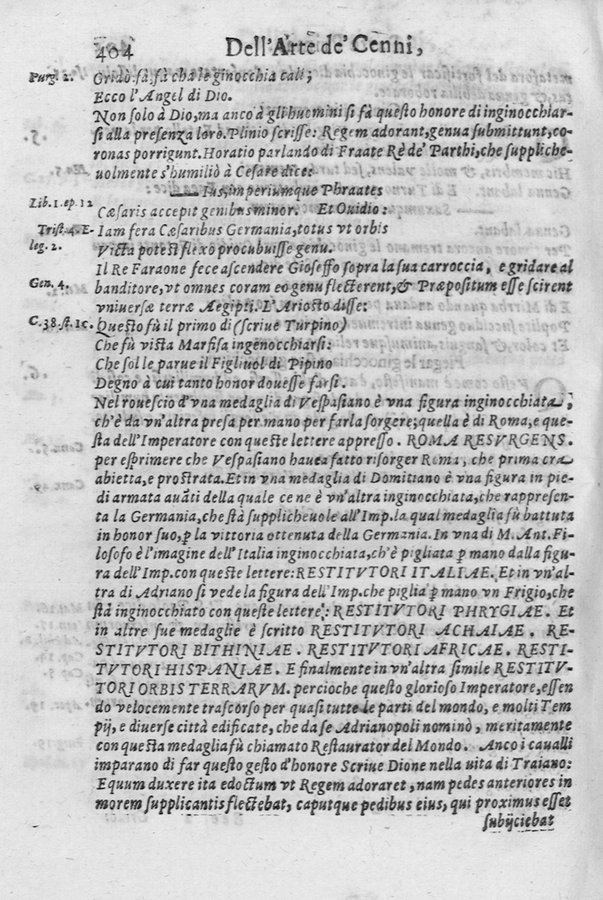 404 Dell'Arte de' Cenni,
Purg. 2. Gridò. fà. fà cha le ginocchia cali;
Ecco l'Angel di Dio.
Non solo à Dio, ma anco à gli huomini si fà questo honore di inginocchiar-
si alla presenza loro. Plinio scrisse: Regem adorant, genua submittunt, co-
ronas porrigunt. Horatio parlando di Fraate Rè de' Parthi, che suppliche-
uolmente s'humiliò à Cesare dice:
Ius, imperiumque Phraates
Lib. 1. ep. 12
Cæsaris accepit genibus minor. Et Ouidio:
Trist. 4. E- Iam fera Cæsaribus Germania, totus vt orbis
leg. 2. Victa potest flexo procubuisse genu.
Il Re Faraone fece ascendere Gioseffo sopra la sua carroccia, e gridare al
Gen. 4. banditore, vt omnes coram eo genu flecterent, & Præpositum esse scirent
vniuersæ terræ Aegipti. L'Ariosto disse:
C. 38. st. 1 Questo fù il primo dì (scriue Turpino)
Che fù vista Marfisa ingenocchiarsi:
Che sol le parue il Figliuol di Pipino
Degno à cui tanto honor douesse farsi.
Nel rouescio d'vna medaglia di Vespasiano è vna figura inginocchiata,
ch'è da vn'altra presa per mano per farla sorgere; quella è di Roma, e que-
sta dell'Imperatore con queste lettere appresso. ROMA RESVRGENS.
per esprimere che Vespasiano hauea fatto risorger Roma, che prima era
abietta, e prostrata. Et in vna medaglia di Domitiano è vna figura in pie-
di armata auāti della quale ce ne è vn'altra inginocchiata, che rappresen-
ta la Germania, che stà supplicheuole all'Imp. la qual medaglia fù battuta
in honor suo, ꝑ la vittoria ottenuta della Germania. In vna di M. Ant. Fi-
losofo è l'imagine dell'Italia inginocchiata, ch'è pigliata ꝑ mano dalla figu-
ra dell'Imp. con queste lettere: RESTITVTORI ITALIAE. Et in vn'al-
tra di Adriano si vede la figura dell'Imp. che piglia ꝑ mano vn Frigio, che
stà inginocchiato con queste lettere: RESTITVTORI PHRYGIAE. Et
in altre sue medaglie è scritto RESTITVTORI ACHAIAE. RE-
STITVTORI BITHINIAE. RESTITVTORI AFRICAE. RESTI-
TVTORI HISPANIAE. E finalmente in vn'altra simile RESTITV-
TORI ORBIS TERRARVM. percioche questo glorioso Imperatore, essen
do velocemente trascorso per quasi tutte le parti del mondo, e molti Tem
pij, e diuerse città edificate, che da se Adrianopoli nominò, meritamente
con questa medaglia fù chiamato Restaurator del Mondo. Anco i caualli
imparano di far questo gesto d'honore Scriue Dione nella uita di Traiano:
Equum duxere ita edoctum vt Regem adoraret, nam pedes anteriores in
morem supplicantis flectebat, caputque pedibus eius, qui proximus esset
subijciebat